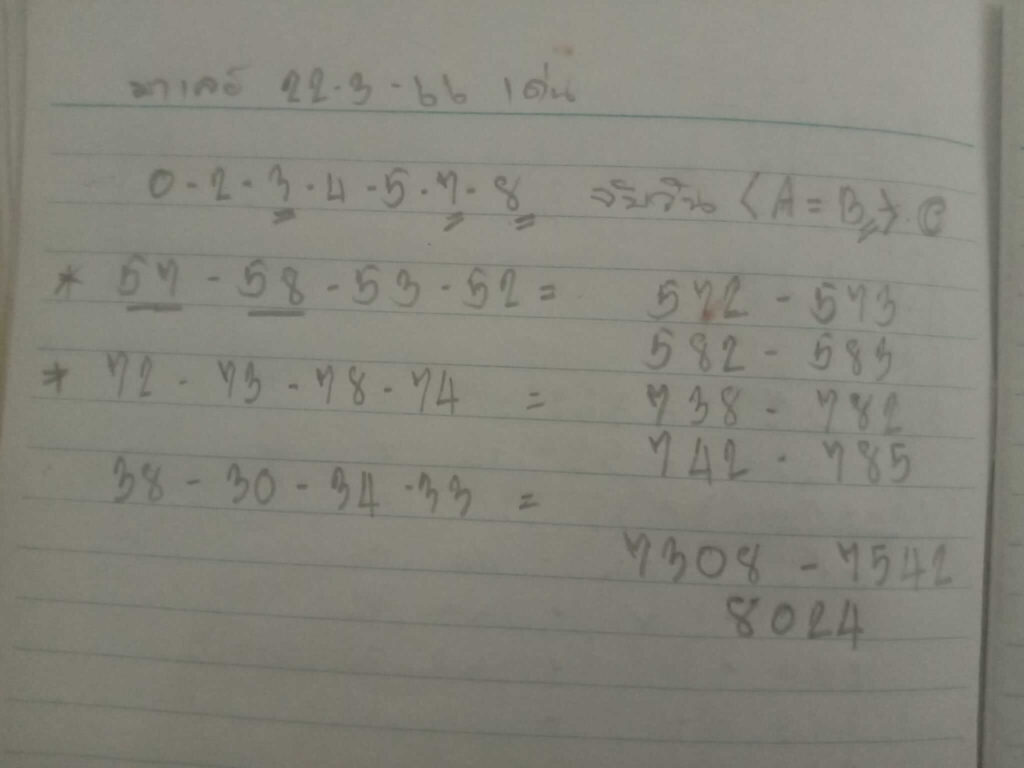 มาเลย์ 22.3-66 เด่น
0-2-3-4-5-7-8 จับวิน (A=B) C
* 57-58-53-52= 572-573
582-583
* 72-73-78-74 = 738-782
742-785
38-30-34-33 =
7308-7542
8024